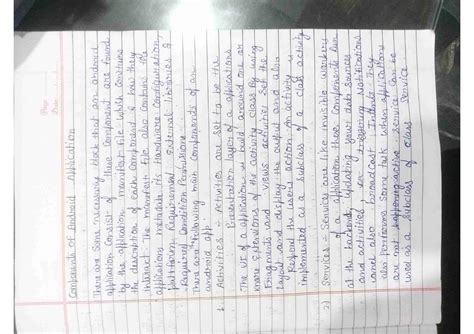 Components of Android Application
There are some necessary block that an android
application consist of these component are found
by the application manifest file which contains
the description of each component & how they
interact The manifest file also contains the
applications metadata its Hardware configuration,
Platform Requirement external libraries &
Required Condition Permissions.
There are following main components of an
android app
1. Activities - Activities are set to be the
Presentation layer of a applications
The UI of a application is build around one or
more extensions of the activity class by using
Fragments and views activities set the
layout and display the output and also
Respond the users action An activity is
implemented as a subclass of a class activity
2) Services - Services are like invisible workers
of application these components run
at the backend, updating your data sources
and activities, on triggering notifications
and also broadcast intents They
also performs some task when applications
are not happening active a service can be
used as a subclass of class Service